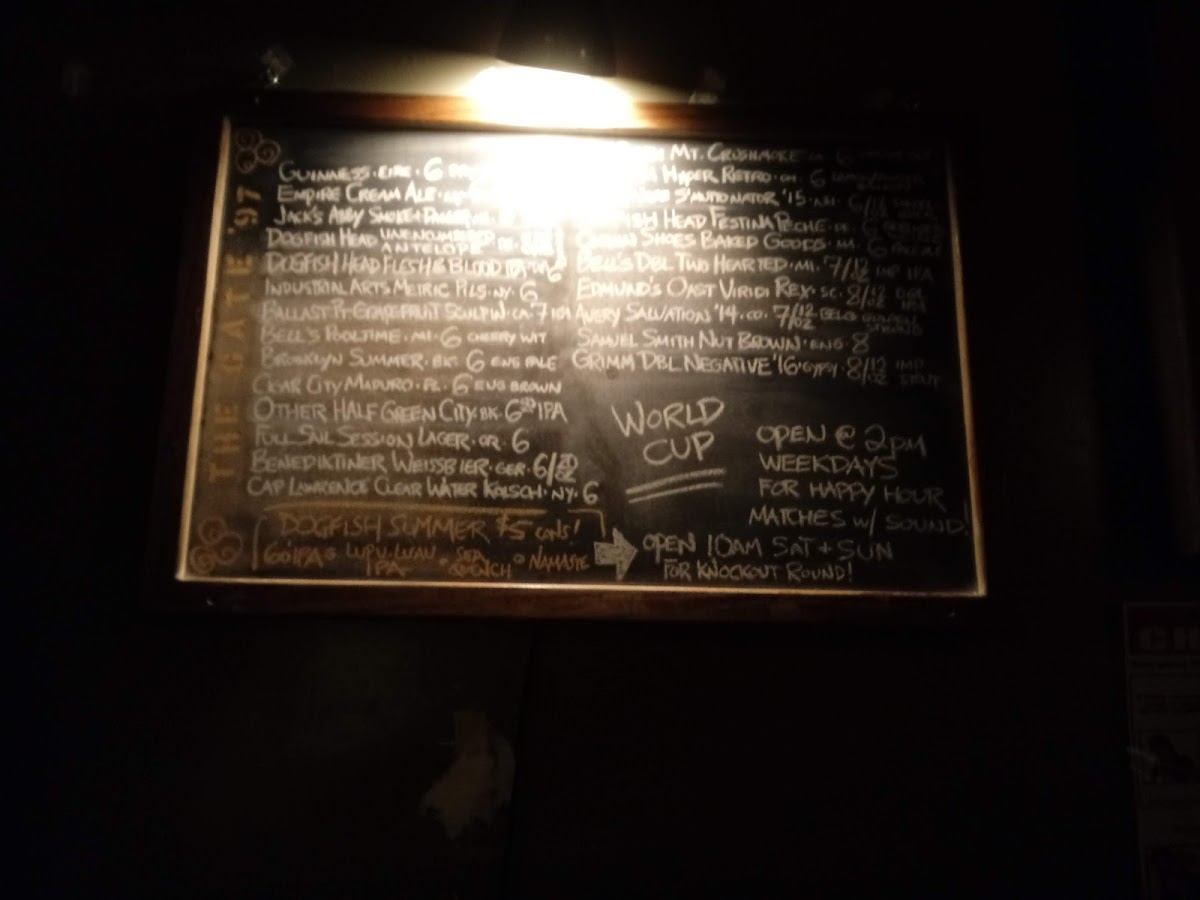 THE GATE '97
GUINNESS · EIRE · 6
EMPIRE CREAM ALE ·
JACK'S ABBY SMOKE &
DOGFISH HEAD UNENCUMBERED
ANTELOPE
DOGFISH HEAD FLESH & BLOOD IPA
INDUSTRIAL ARTS METRIC PILS · NY · 6
BALLAST PT GRAPEFRUIT SCULPIN · CA · 7 IPA
BELL'S POOLTIME · MI · 6 CHERRY WIT
BROOKLYN SUMMER · BK · 6 ENG PALE
CIGAR CITY MADURO · FL · 6 ENG BROWN
OTHER HALF GREEN CITY · BK · 6 IPA
FULL SAIL SESSION LAGER · OR · 6
BENEDIKTINER WEISSBIER · GER · 6/
CAP LAWRENCE CLEAR WATER KOLSCH · NY · 6
DOGFISH SUMMER $5 CANS!
60 IPA LUPU-LUAU IPA · SEA QUENCH · NAMASTE
MT. CRUSHMORE
HYPER RETRO · 6
S'MUTTONATOR '15 · NH · 6/12
HEAD FESTINA PECHE · DE · 6
SHOES BAKED GOODS · MA · 6 PALE ALE
BELL'S DBL TWO HEARTED · MI · 7/12 IMP IPA
EDMUND'S OAST VIRIDI REX · SC · 8/12 OZ DBL IPA
AVERY SALVATION '14 · CO · 7/12 OZ BELG GOLDEN STRONG
SAMUEL SMITH NUT BROWN · ENG · 8
GRIMM DBL NEGATIVE '16 · GYPSY · 8/12 OZ IMP STOUT
WORLD
CUP
OPEN @ 2PM
WEEKDAYS
FOR HAPPY HOUR
MATCHES W/ SOUND!
OPEN 10AM SAT + SUN
FOR KNOCKOUT ROUND!